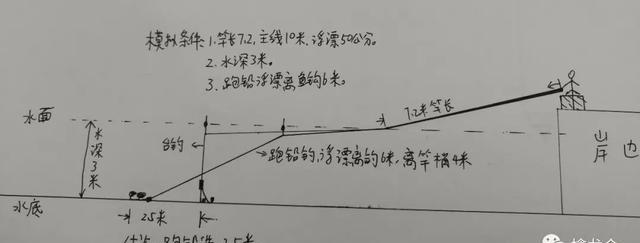 模拟条件 1. 竿长7.2, 主线10米, 浮漂50公分。
2. 水深3米。
3. 跑铅浮漂离鱼钩6米。
7.2米竿长
水面
水深3米
台钓
跑铅钓, 浮漂离钩6米, 离竿梢4米
岸边
水底
2.5米